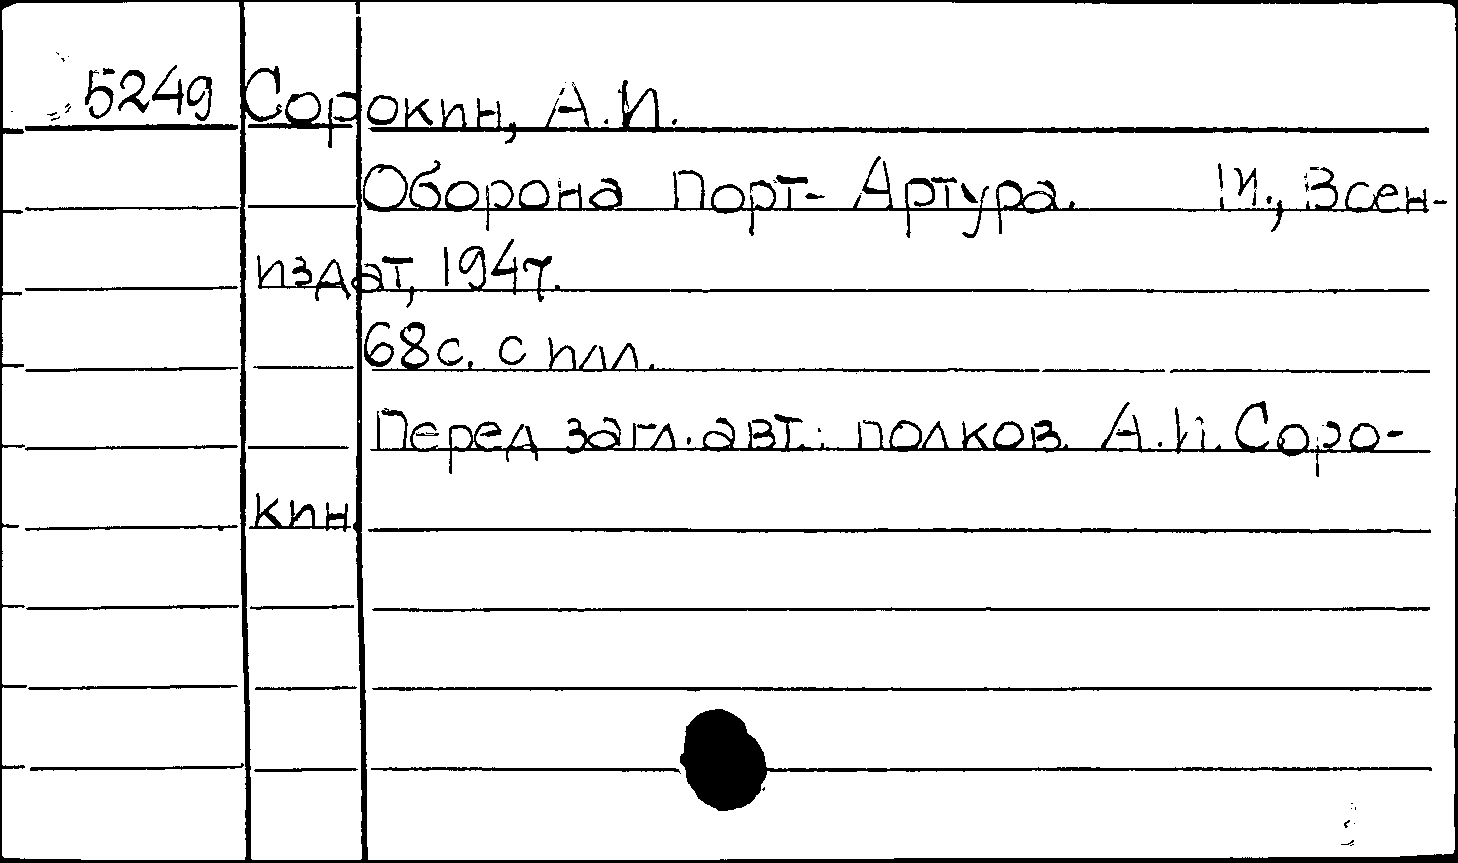 5249 Сорокин, А.И.
Оборона Порт-Артура. М., Воен-
издат, 1947.
68с. с илл.
Перед загл. авт.: полков. А.И. Соро-
кин.